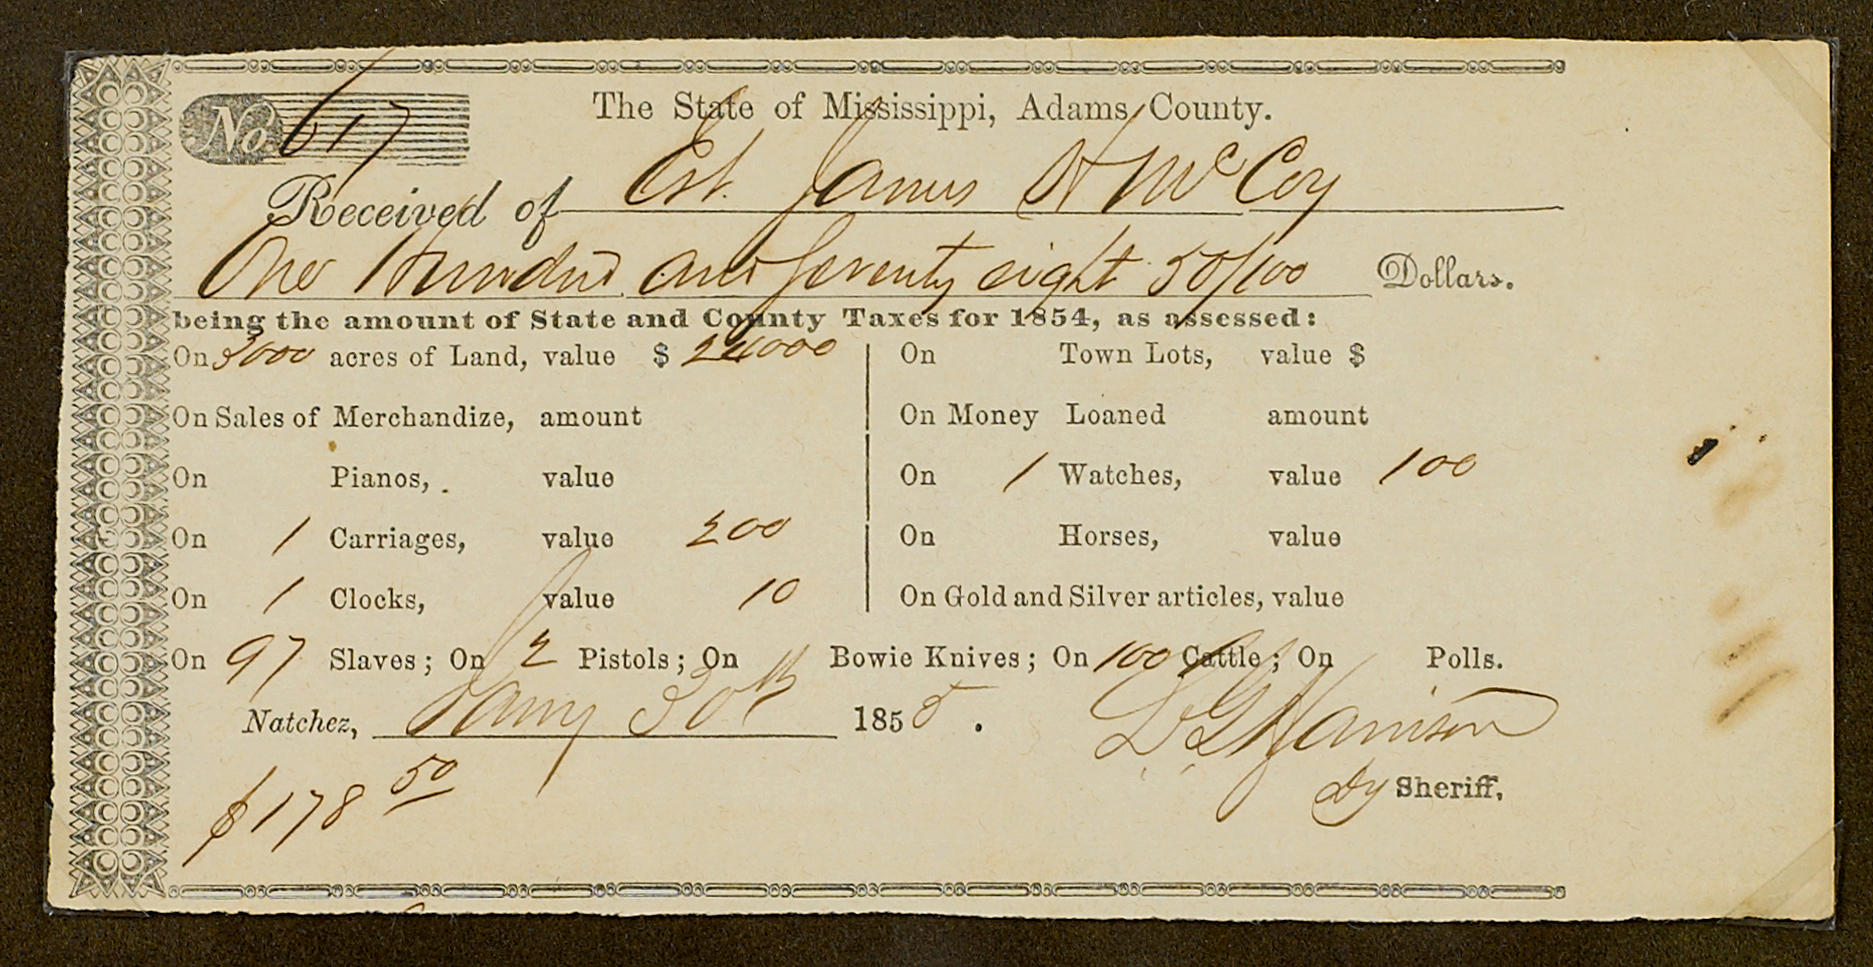 No 617 The State of Mississippi, Adams County.
Received of Est. James H McCoy
One Hundred and Seventy eight 50/100 Dollars.
being the amount of State and County Taxes for 1854, as assessed:
On 3000 acres of Land, value $ 24000 On Town Lots, value $
On Sales of Merchandize, amount On Money Loaned amount
On Pianos, value On 1 Watches, value 100
On 1 Carriages, value 200 On Horses, value
On 1 Clocks, value 10 On Gold and Silver articles, value
On 97 Slaves; On 2 Pistols; On Bowie Knives; On 100 Cattle; On Polls.
Natchez, Jany 30th 1855.
Harrison
$178 50 Dy Sheriff,